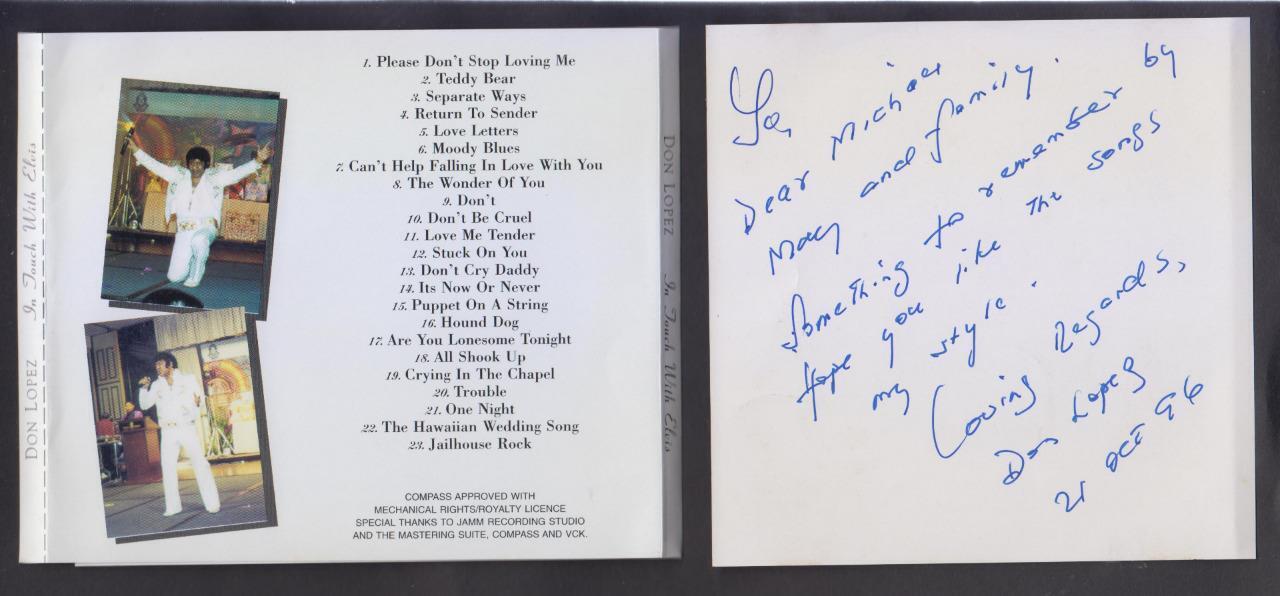 DON LOPEZ In Touch With Elvis
1. Please Don't Stop Loving Me
2. Teddy Bear
3. Separate Ways
4. Return To Sender
5. Love Letters
6. Moody Blues
7. Can't Help Falling In Love With You
8. The Wonder Of You
9. Don't
10. Don't Be Cruel
11. Love Me Tender
12. Stuck On You
13. Don't Cry Daddy
14. Its Now Or Never
15. Puppet On A String
16. Hound Dog
17. Are You Lonesome Tonight
18. All Shook Up
19. Crying In The Chapel
20. Trouble
21. One Night
22. The Hawaiian Wedding Song
23. Jailhouse Rock
COMPASS APPROVED WITH
MECHANICAL RIGHTS/ROYALTY LICENCE
SPECIAL THANKS TO JAMM RECORDING STUDIO
AND THE MASTERING SUITE, COMPASS AND VCK.
DON LOPEZ In Touch With Elvis
Dear Michael
and family.
Something to remember by
Hope you like the songs
my style.
Loving Regards,
Don Lopez
21 Oct 96